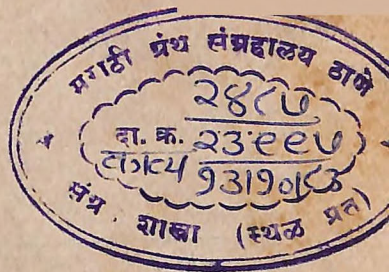 मराठी ग्रंथ संग्रहालय ठाणे
२४८७
दा. क. २३९९५
१३।१०।८३
संग्र. शाखा (स्थळ प्रत)